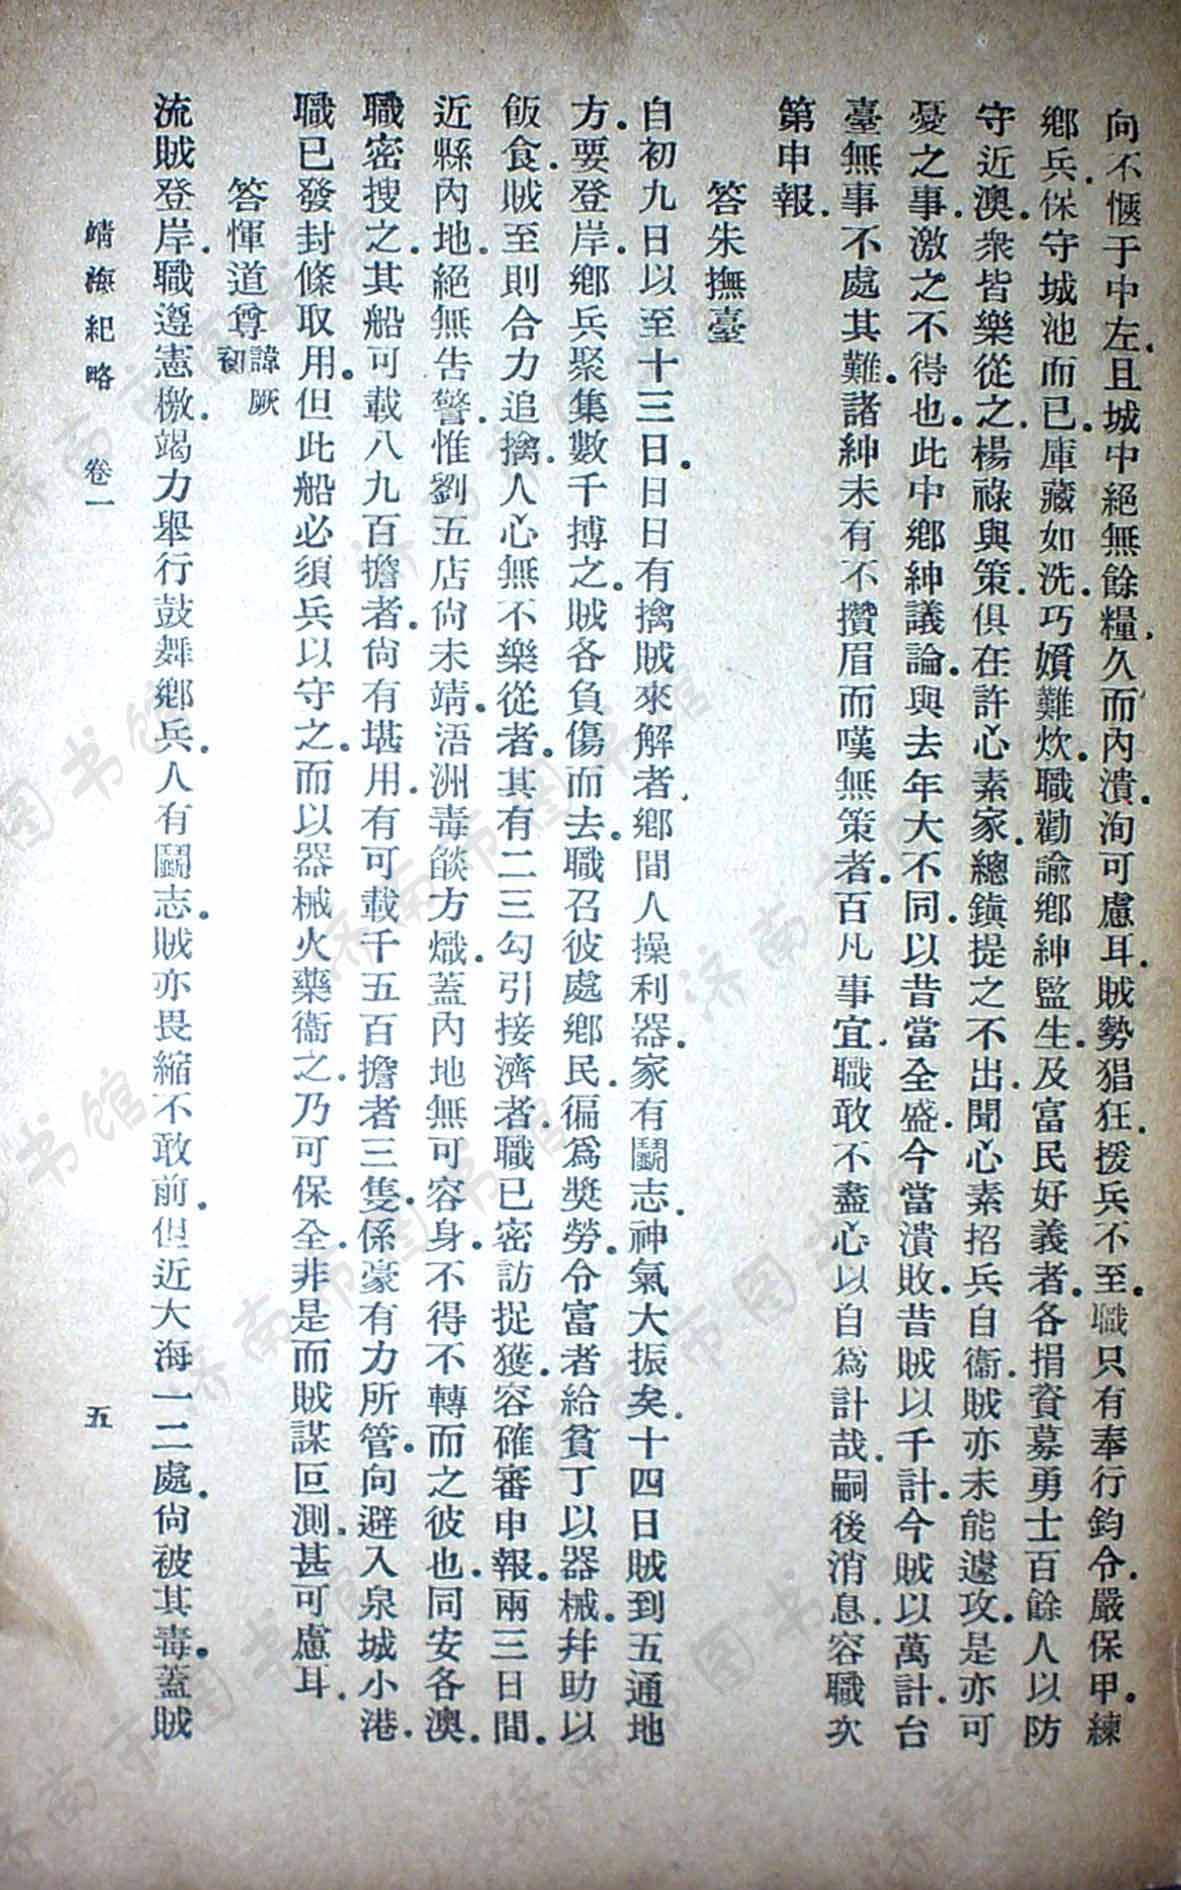 向不愜于中左.且城中絕無餘糧.久而內潰.洵可慮耳.賊勢猖狂.援兵不至.職只有奉行鈞令.嚴保甲.練
鄉兵.保守城池而已.庫藏如洗.巧婦難炊.職勸諭鄉紳監生.及富民好義者.各捐資募勇士百餘人以防
守近澳.衆皆樂從之.楊祿與策.俱在許心素家.總鎮提之不出.聞心素招兵自衞.賊亦未能遽攻.是亦可
憂之事.激之不得也.此中鄉紳議論.與去年大不同.以昔當全盛.今當潰敗.昔賊以千計.今賊以萬計.台
臺無事不處其難.諸紳未有不攢眉而嘆無策者.百凡事宜.職敢不盡心以自爲計哉.嗣後消息.容職次
第申報.
答朱撫臺
自初九日以至十三日.日日有擒賊來解者.鄉間人操利器.家有鬭志.神氣大振矣.十四日賊到五通地
方.要登岸.鄉兵聚集數千搏之.賊各負傷而去.職召彼處鄉民.徧爲獎勞.令富者給貧丁以器械.幷助以
飯食.賊至則合力追擒.人心無不樂從者.其有二三勾引接濟者.職已密訪捉獲.容確審申報.兩三日間.
近縣內地.絕無告警.惟劉五店尙未靖.浯洲毒燄方熾.蓋內地無可容身.不得不轉而之彼也.同安各澳.
職密搜之.其船可載八九百擔者.尙有堪用.有可載千五百擔者三隻.係豪有力所管.向避入泉城小港.
職已發封條取用.但此船必須兵以守之.而以器械火藥衞之.乃可保全.非是而賊謀叵測.甚可慮耳.
答惲道尊諱厥初
流賊登岸.職遵憲檄.竭力舉行.鼓舞鄉兵.人有鬭志.賊亦畏縮不敢前.但近大海一二處.尙被其毒.蓋賊
靖海紀略 卷一 五